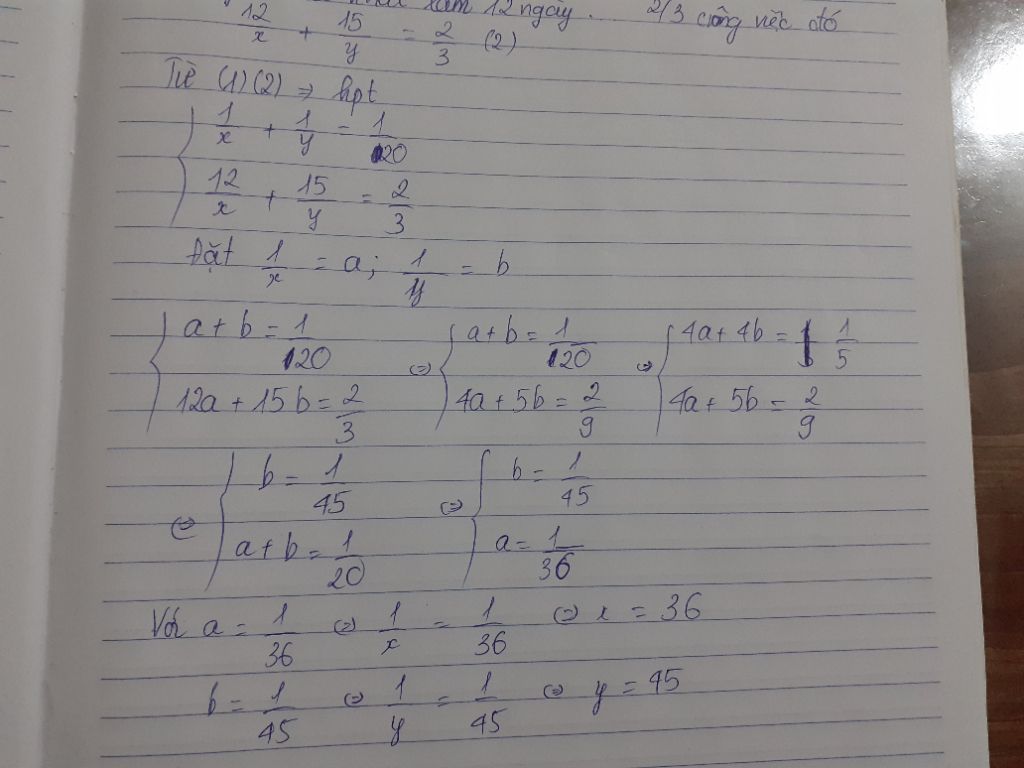 làm 12 ngày. 2/3 công việc đó
12/x + 15/y = 2/3 (2)
Từ (1)(2) => hpt
{ 1/x + 1/y = 1/20
12/x + 15/y = 2/3
Đặt 1/x = a; 1/y = b
{ a + b = 1/20 <=> { a + b = 1/20 <=> { 4a + 4b = 1/5
12a + 15b = 2/3 4a + 5b = 2/9 4a + 5b = 2/9
<=> { b = 1/45 <=> { b = 1/45
a + b = 1/20 a = 1/36
Với a = 1/36 <=> 1/x = 1/36 <=> x = 36
b = 1/45 <=> 1/y = 1/45 <=> y = 45